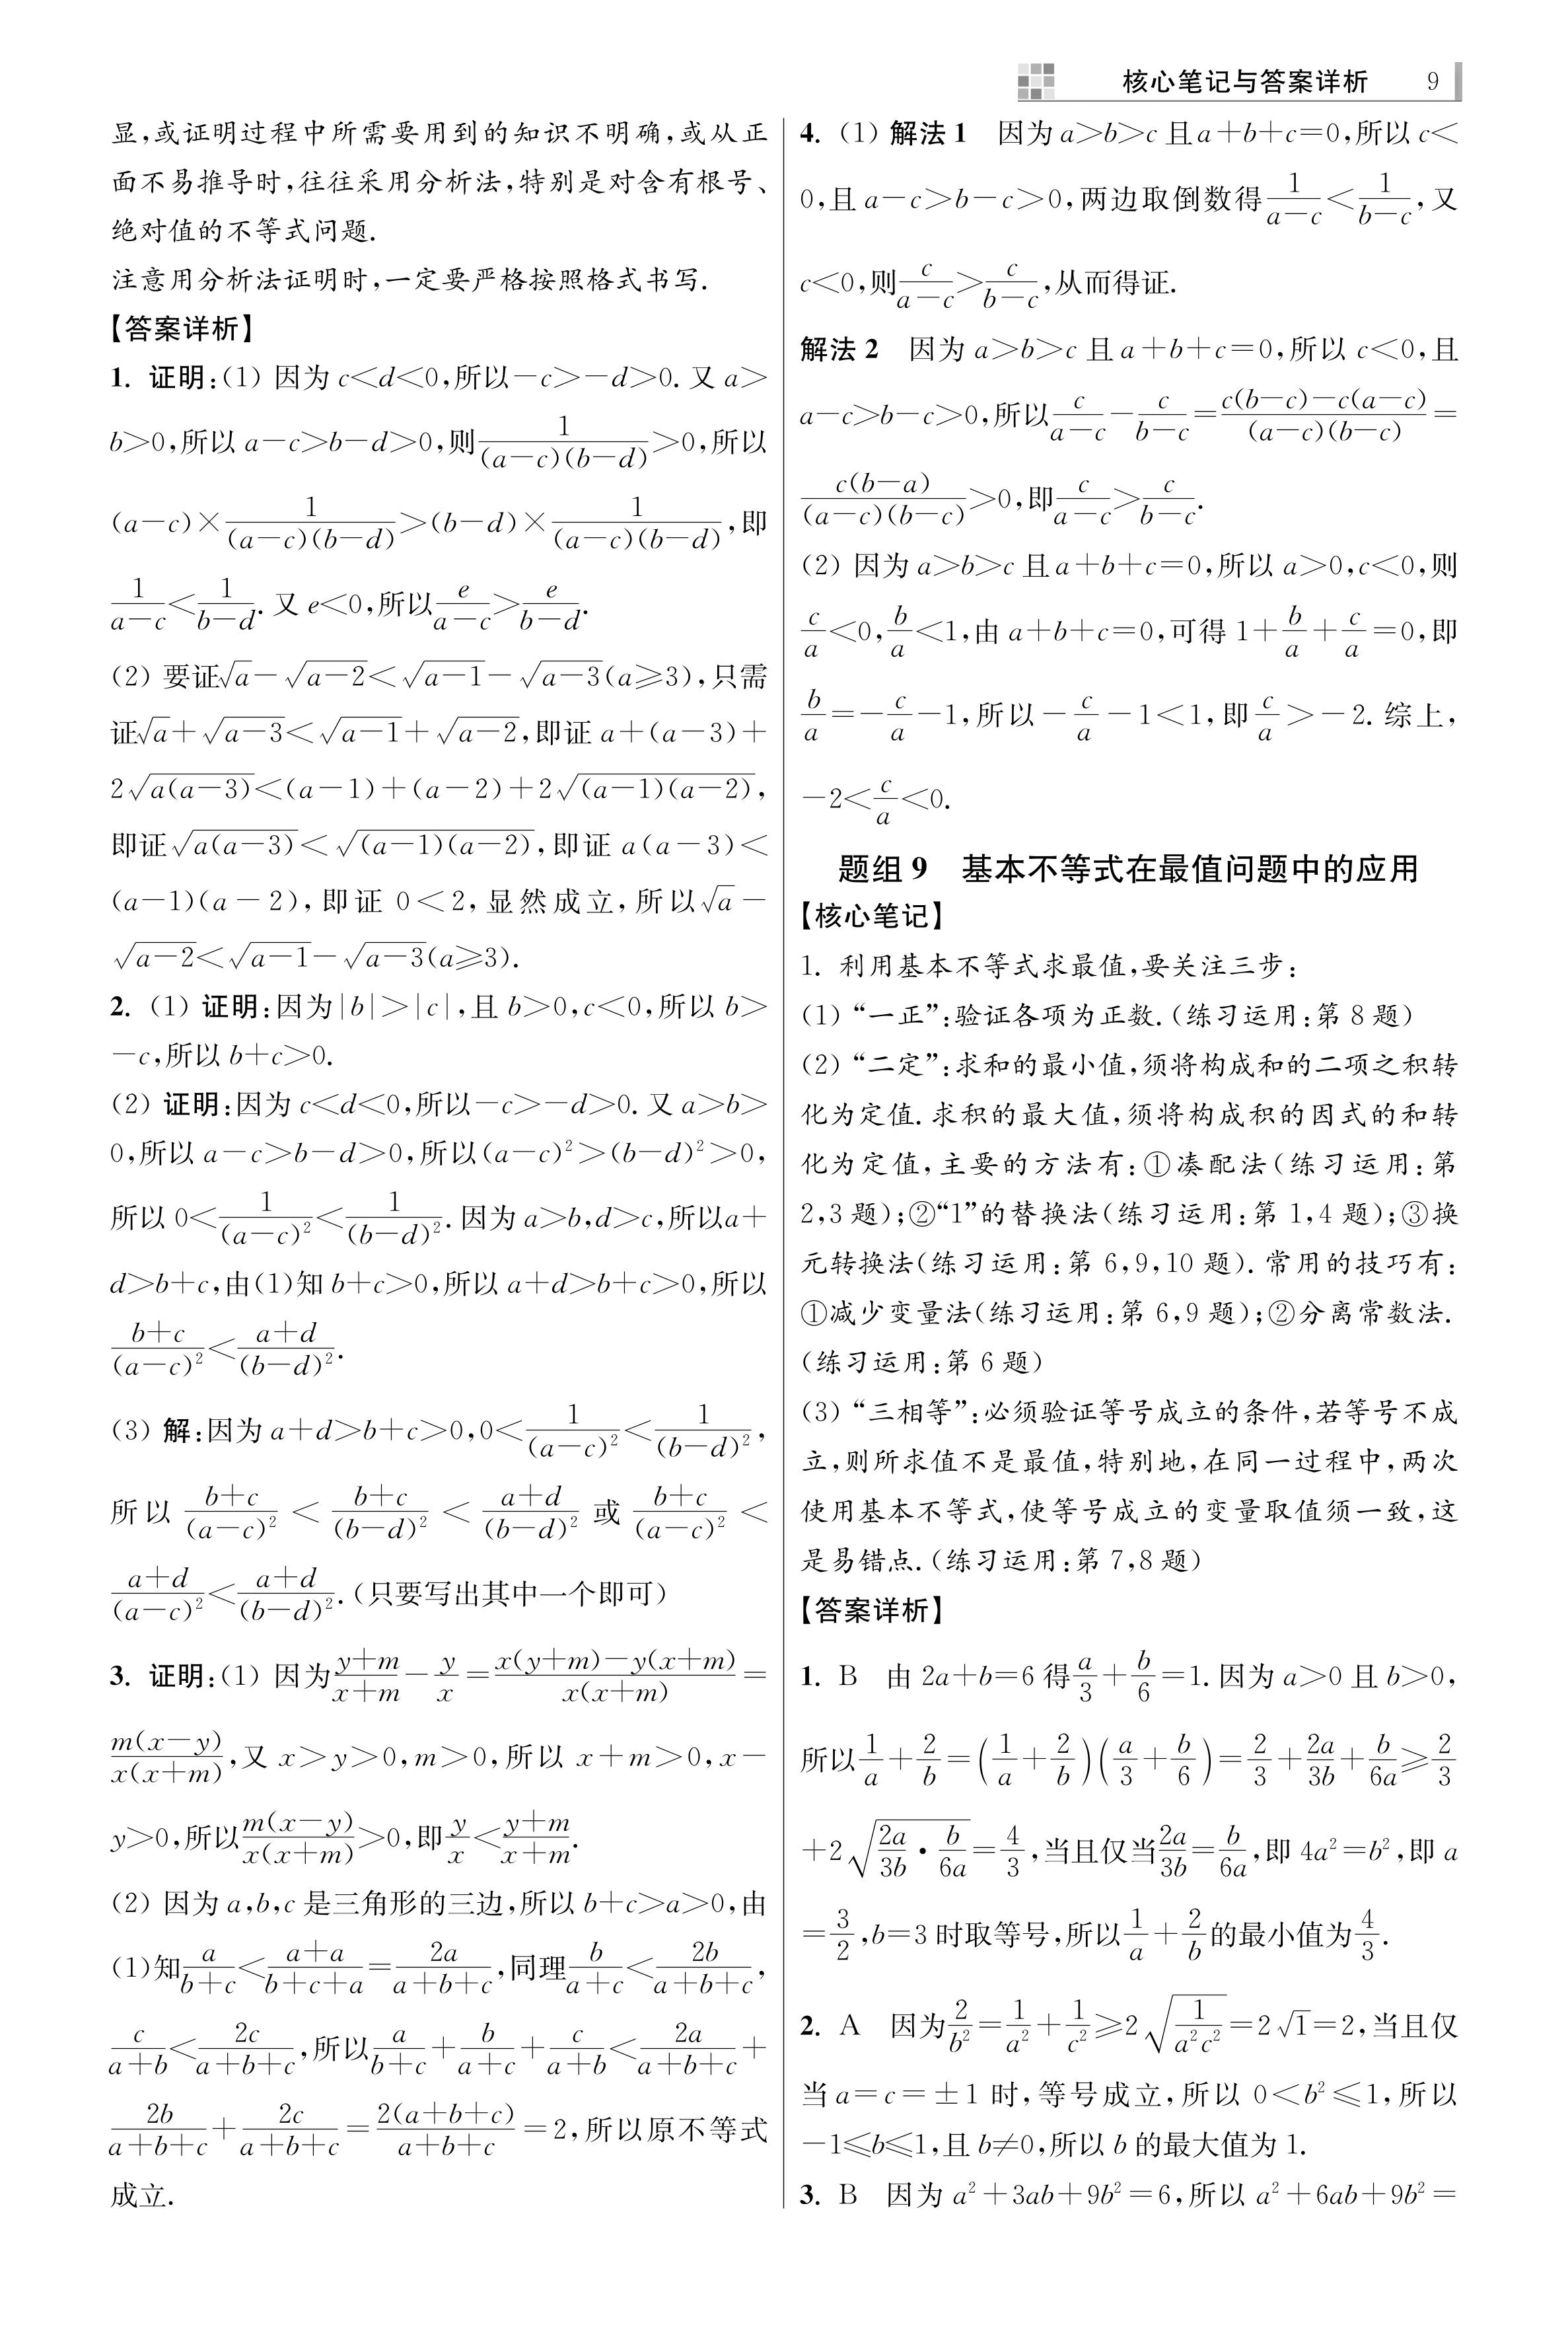 核心笔记与答案详析 9
显,或证明过程中所需要用到的知识不明确,或从正
面不易推导时,往往采用分析法,特别是对含有根号、
绝对值的不等式问题.
注意用分析法证明时,一定要严格按照格式书写.
【答案详析】
1. 证明:(1) 因为 c<d<0,所以-c>-d>0. 又 a>
b>0,所以 a-c>b-d>0,则\frac{1}{(a-c)(b-d)}>0,所以
(a-c)×\frac{1}{(a-c)(b-d)}>(b-d)×\frac{1}{(a-c)(b-d)},即
\frac{1}{a-c}<\frac{1}{b-d}. 又 e<0,所以\frac{e}{a-c}>\frac{e}{b-d}.
(2) 要证\sqrt{a}-\sqrt{a-2}<\sqrt{a-1}-\sqrt{a-3}(a≥3),只需
证\sqrt{a}+\sqrt{a-3}<\sqrt{a-1}+\sqrt{a-2},即证 a+(a-3)+
2\sqrt{a(a-3)}<(a-1)+(a-2)+2\sqrt{(a-1)(a-2)},
即证\sqrt{a(a-3)}<\sqrt{(a-1)(a-2)},即证 a(a-3)<
(a-1)(a-2),即证 0<2,显然成立,所以\sqrt{a}-
\sqrt{a-2}<\sqrt{a-1}-\sqrt{a-3}(a≥3).
2. (1) 证明:因为|b|>|c|,且 b>0,c<0,所以 b>
-c,所以 b+c>0.
(2) 证明:因为 c<d<0,所以-c>-d>0. 又 a>b>
0,所以 a-c>b-d>0,所以(a-c)²>(b-d)²>0,
所以 0<\frac{1}{(a-c)²}<\frac{1}{(b-d)²}. 因为 a>b,d>c,所以a+
d>b+c,由(1)知 b+c>0,所以 a+d>b+c>0,所以
\frac{b+c}{(a-c)²}<\frac{a+d}{(b-d)²}.
(3) 解:因为 a+d>b+c>0,0<\frac{1}{(a-c)²}<\frac{1}{(b-d)²},
所以\frac{b+c}{(a-c)²}<\frac{b+c}{(b-d)²}<\frac{a+d}{(b-d)²}或\frac{b+c}{(a-c)²}<
\frac{a+d}{(a-c)²}<\frac{a+d}{(b-d)²}. (只要写出其中一个即可)
3. 证明:(1) 因为\frac{y+m}{x+m}-\frac{y}{x}=\frac{x(y+m)-y(x+m)}{x(x+m)}=
\frac{m(x-y)}{x(x+m)},又 x>y>0,m>0,所以 x+m>0,x-
y>0,所以\frac{m(x-y)}{x(x+m)}>0,即\frac{y}{x}<\frac{y+m}{x+m}.
(2) 因为 a,b,c 是三角形的三边,所以 b+c>a>0,由
(1)知\frac{a}{b+c}<\frac{a+a}{b+c+a}=\frac{2a}{a+b+c},同理\frac{b}{a+c}<\frac{2b}{a+b+c},
\frac{c}{a+b}<\frac{2c}{a+b+c},所以\frac{a}{b+c}+\frac{b}{a+c}+\frac{c}{a+b}<\frac{2a}{a+b+c}+
\frac{2b}{a+b+c}+\frac{2c}{a+b+c}=\frac{2(a+b+c)}{a+b+c}=2,所以原不等式
成立.
4. (1) 解法 1 因为 a>b>c 且 a+b+c=0,所以 c<
0,且 a-c>b-c>0,两边取倒数得\frac{1}{a-c}<\frac{1}{b-c},又
c<0,则\frac{c}{a-c}>\frac{c}{b-c},从而得证.
解法 2 因为 a>b>c 且 a+b+c=0,所以 c<0,且
a-c>b-c>0,所以\frac{c}{a-c}-\frac{c}{b-c}=\frac{c(b-c)-c(a-c)}{(a-c)(b-c)}=
\frac{c(b-a)}{(a-c)(b-c)}>0,即\frac{c}{a-c}>\frac{c}{b-c}.
(2) 因为 a>b>c 且 a+b+c=0,所以 a>0,c<0,则
\frac{c}{a}<0,\frac{b}{a}<1,由 a+b+c=0,可得 1+\frac{b}{a}+\frac{c}{a}=0,即
\frac{b}{a}=-\frac{c}{a}-1,所以-\frac{c}{a}-1<1,即\frac{c}{a}>-2. 综上,
-2<\frac{c}{a}<0.
题组 9 基本不等式在最值问题中的应用
【核心笔记】
1. 利用基本不等式求最值,要关注三步:
(1) “一正”:验证各项为正数. (练习运用:第 8 题)
(2) “二定”:求和的最小值,须将构成和的二项之积转
化为定值. 求积的最大值,须将构成积的因式的和转
化为定值,主要的方法有:①凑配法(练习运用:第
2,3 题);②“1”的替换法(练习运用:第 1,4 题);③换
元转换法(练习运用:第 6,9,10 题). 常用的技巧有:
①减少变量法(练习运用:第 6,9 题);②分离常数法.
(练习运用:第 6 题)
(3) “三相等”:必须验证等号成立的条件,若等号不成
立,则所求值不是最值,特别地,在同一过程中,两次
使用基本不等式,使等号成立的变量取值须一致,这
是易错点. (练习运用:第 7,8 题)
【答案详析】
1. B 由 2a+b=6 得\frac{a}{3}+\frac{b}{6}=1. 因为 a>0 且 b>0,
所以\frac{1}{a}+\frac{2}{b}=(\frac{1}{a}+\frac{2}{b})(\frac{a}{3}+\frac{b}{6})=\frac{2}{3}+\frac{2a}{3b}+\frac{b}{6a}≥\frac{2}{3}
+2\sqrt{\frac{2a}{3b}·\frac{b}{6a}}=\frac{4}{3},当且仅当\frac{2a}{3b}=\frac{b}{6a},即 4a²=b²,即 a
=\frac{3}{2},b=3 时取等号,所以\frac{1}{a}+\frac{2}{b}的最小值为\frac{4}{3}.
2. A 因为\frac{2}{b²}=\frac{1}{a²}+\frac{1}{c²}≥2\sqrt{\frac{1}{a²c²}}=2\sqrt{1}=2,当且仅
当 a=c=±1 时,等号成立,所以 0<b²≤1,所以
-1≤b≤1,且 b≠0,所以 b 的最大值为 1.
3. B 因为 a²+3ab+9b²=6,所以 a²+6ab+9b²=